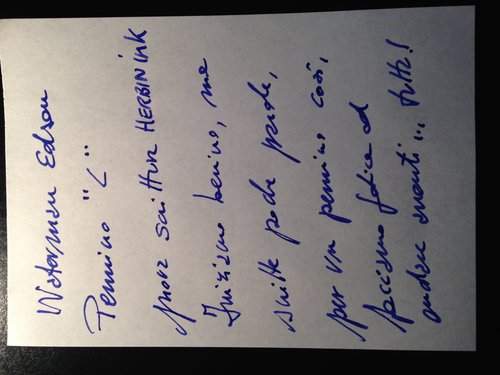 Waterman Edson
Pennino "L"
prova scrittura HERBIN INK
Iniziamo benino, ma
scritte poche parole,
per un pennino così,
facciamo fatica ad
andare avanti... tutto!